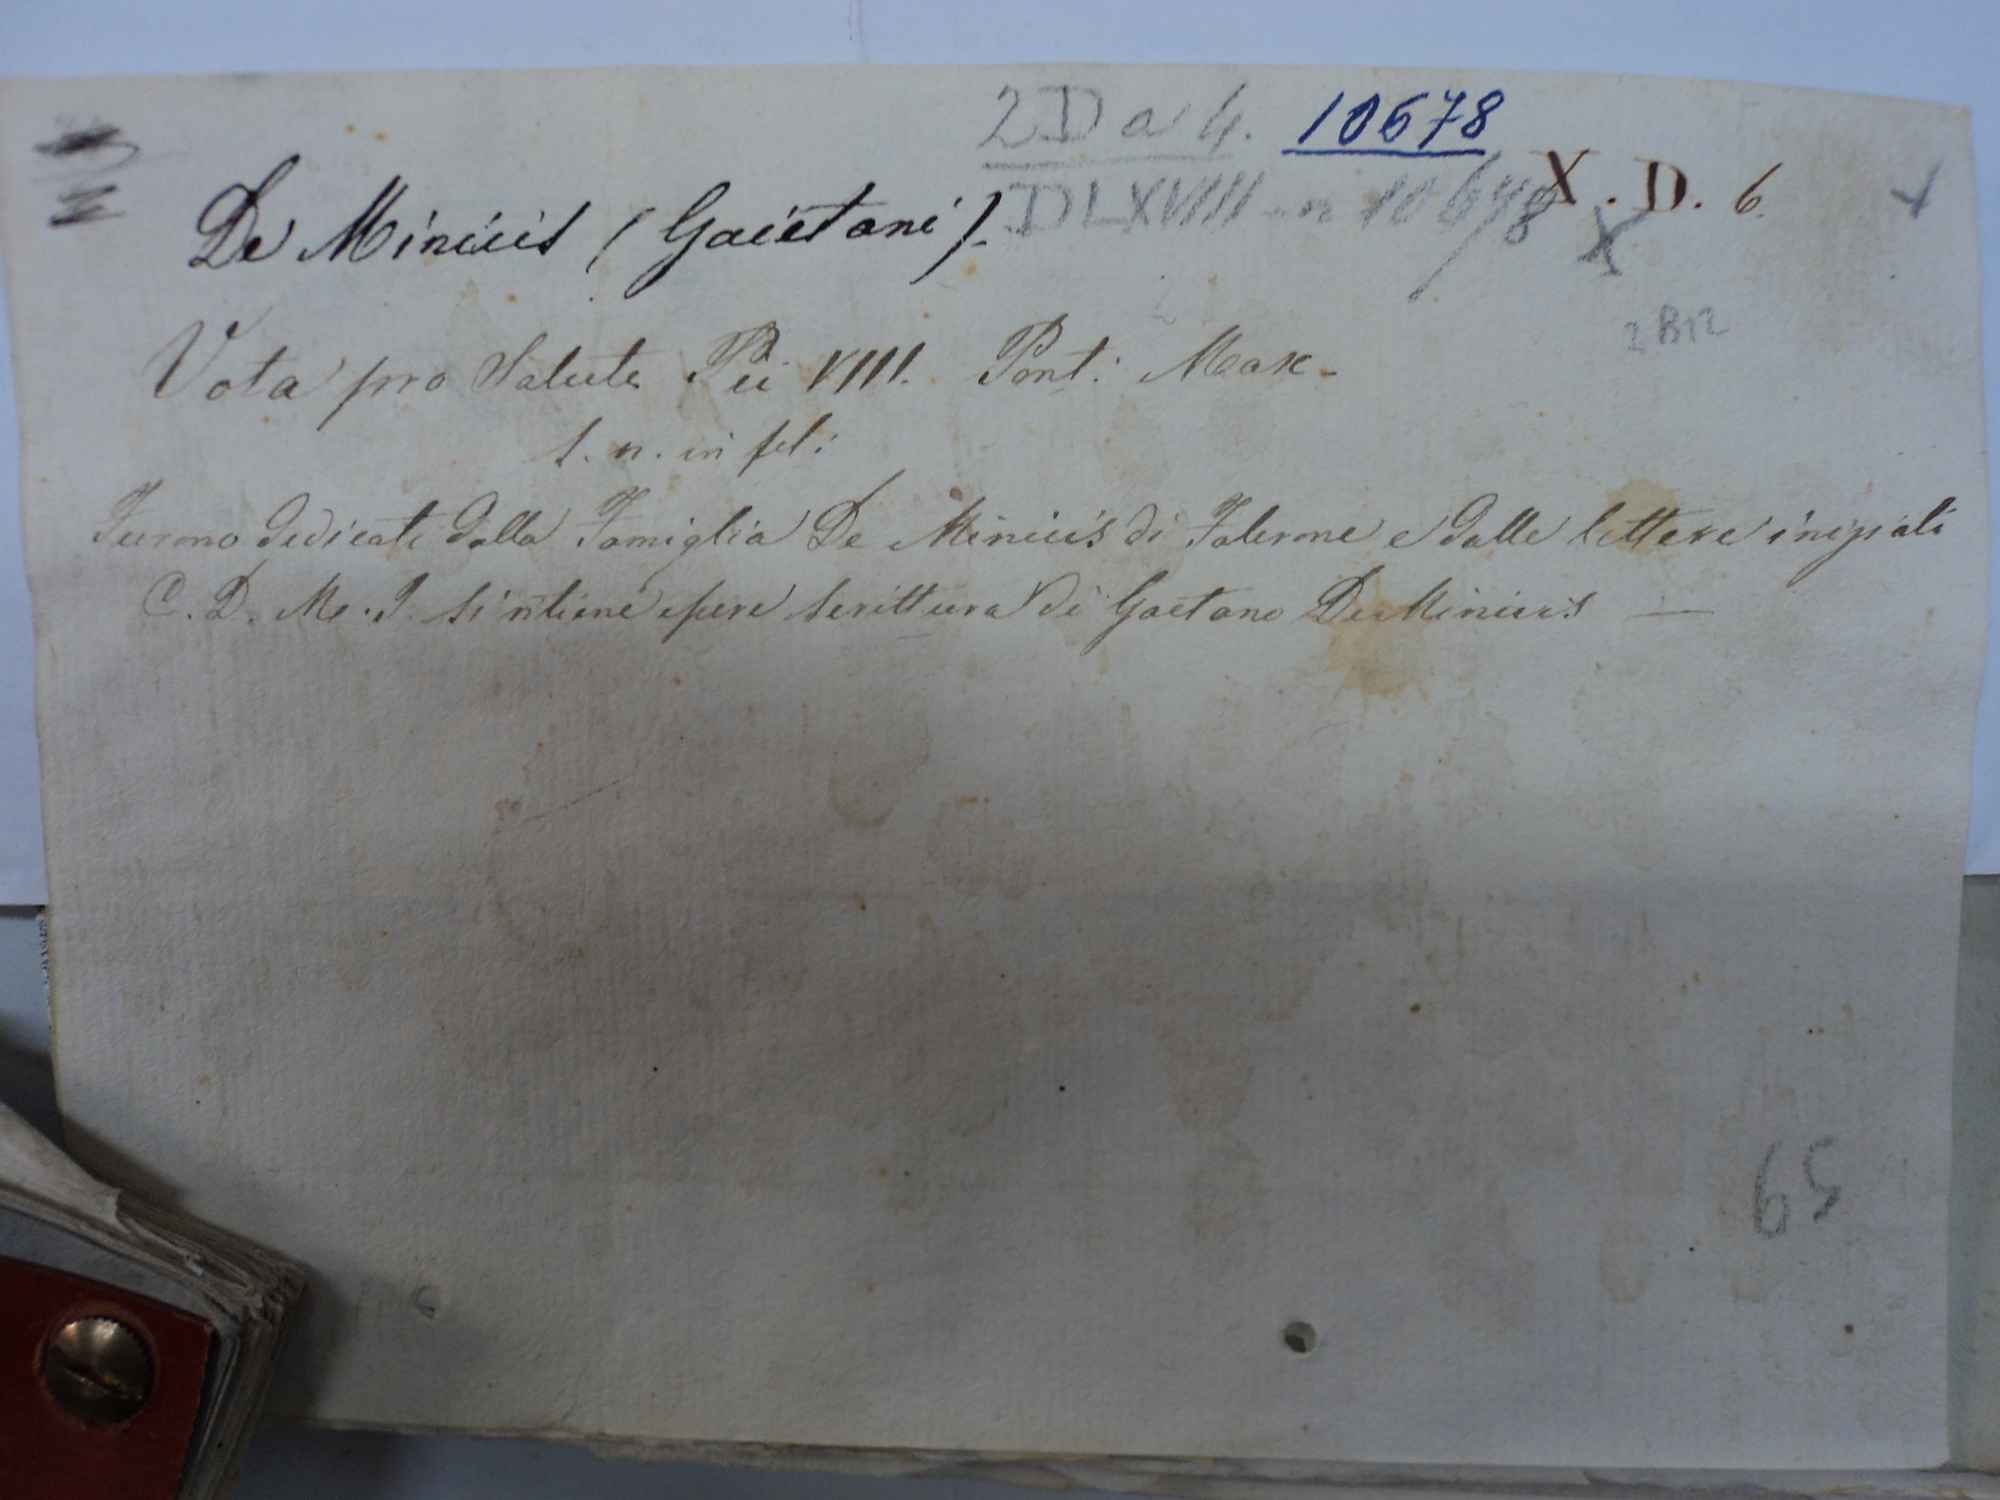 2D a 4. 10678
DLXVIII - n 10678 X. D. 6.
De Minicis (Gaietani).
2 B 12
Vota pro Salute Pii VIII. Pont: Max.
s. n. in fol:
Furono dedicati dalla Famiglia De Minicis di Falerone e dalle lettere iniziali
C. D. M. I. si ritiene essere scrittura di Gaetano De Minicis —
65